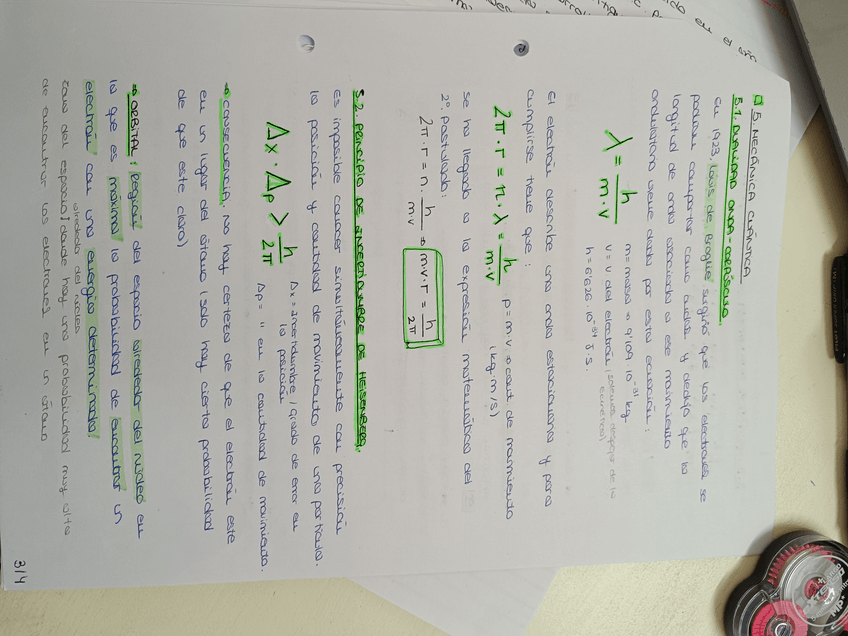 5. MECÁNICA CUÁNTICA
5.1. DUALIDAD ONDA-CORPÚSCULO.
En 1923, Louis de Broglie sugirió que los electrones se
podían comportar como ondas y dedujo que la
longitud de onda asociada a ese movimiento
ondulatorio viene dada por esta ecuación:
λ = h / m·v
m = masa → 9'109·10⁻³¹ kg
v = v del electrón (solemos despejar de la ecuación)
h = 6'626·10⁻³⁴ J·s.
El electrón describe una onda estacionaria y para
cumplirse tiene que:
2π·r = n·λ = h / m·v
p = m·v → cant de movimiento
(kg m/s)
se ha llegado a la expresión matemática del
2º postulado:
2π·r = n· h / mv → m·v·r = h / 2π
5.2. PRINCIPIO DE INCERTIDUMBRE DE HEISENBERG.
Es imposible conocer simultáneamente con precisión
la posición y cantidad de movimiento de una partícula.
Δx · Δp > h / 2π
Δx = incertidumbre / grado de error en
la posición
Δp = " en la cantidad de movimiento.
→ consecuencia, no hay certeza de que el electrón este
en un lugar del átomo (solo hay cierta probabilidad
de que este claro)
→ ORBITAL: Región del espacio alrededor del núcleo en
la que es máxima la probabilidad de encontrar un
electrón con una energía determinada.
alrededor del núcleo
zona del espacio / donde hay una probabilidad muy alta
de encontrar los electrones en un átomo
3/4